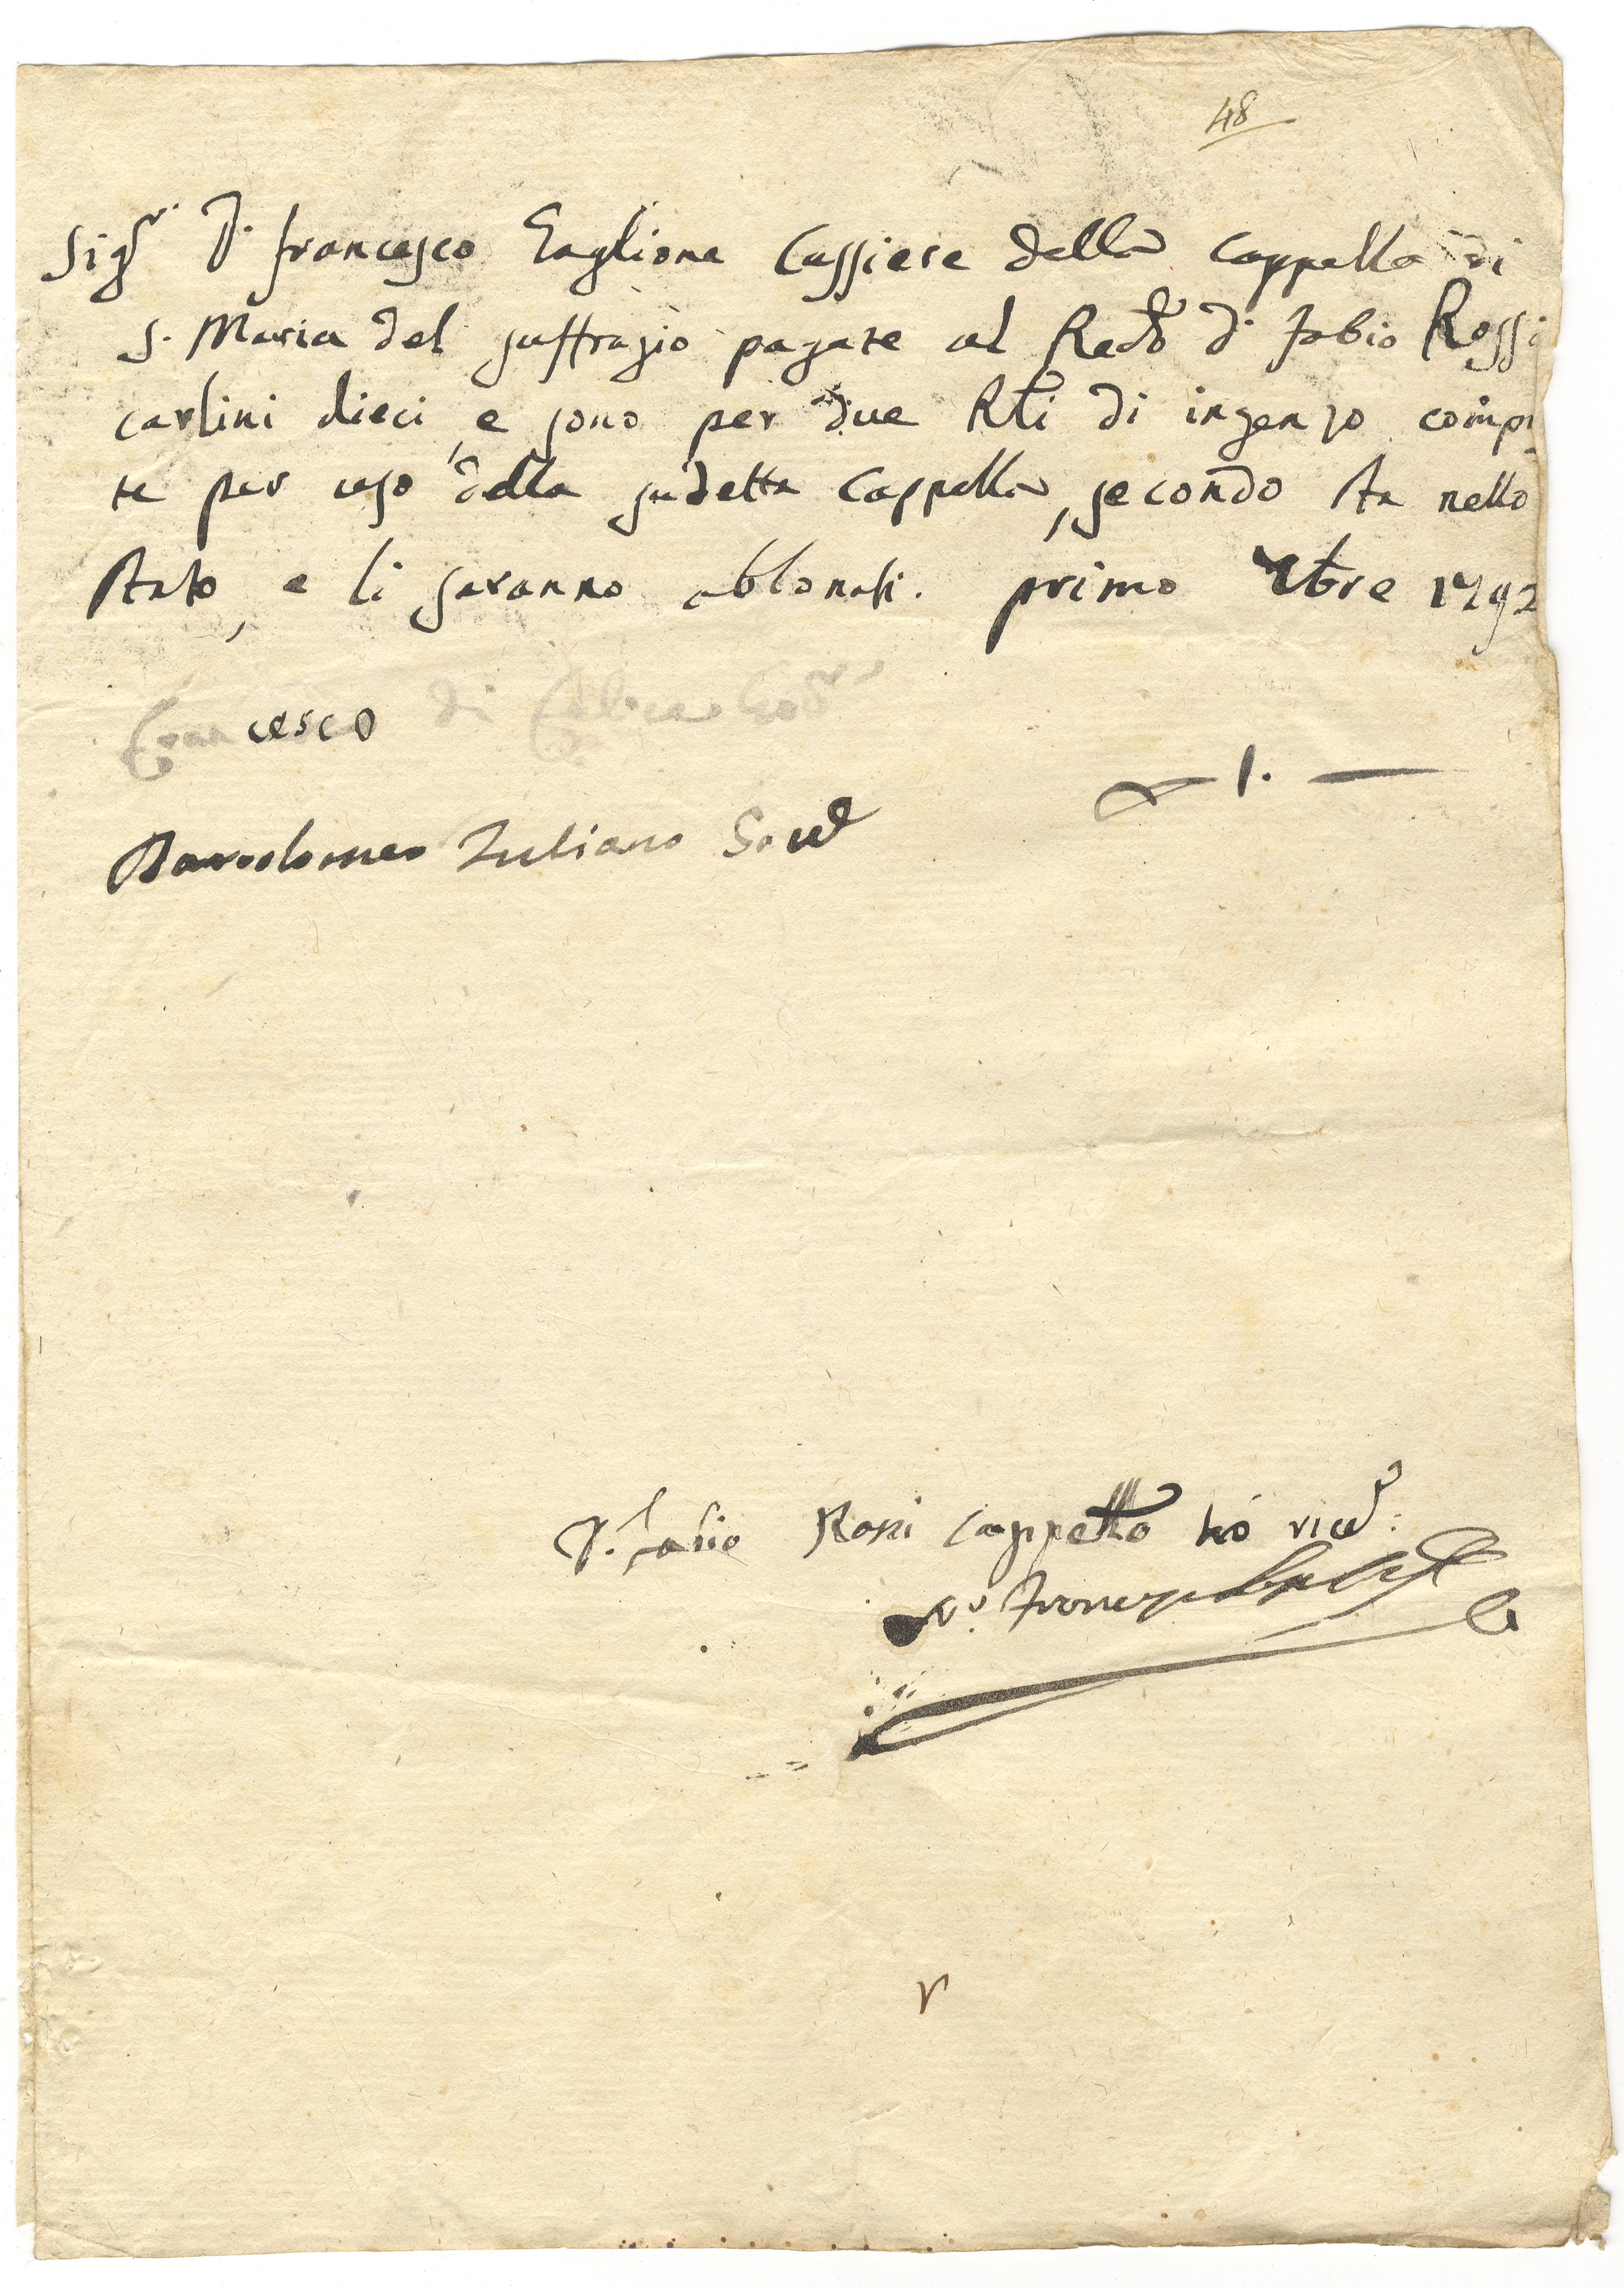 48
Sig.r D. Francesco Taglione Cassiere della Cappella di
S. Maria del suffragio pagate al Redo D. Fabio Rossi
carlini dieci, e sono per due Rti di ingenzo compr
te per uso della sudetta Cappella, secondo sta nello
stato, e li saranno abbonati. primo 7bre 1792
Francesco di
1. —
Bartolomeo Iuliano
D. Fabio Rossi Cappellano hò